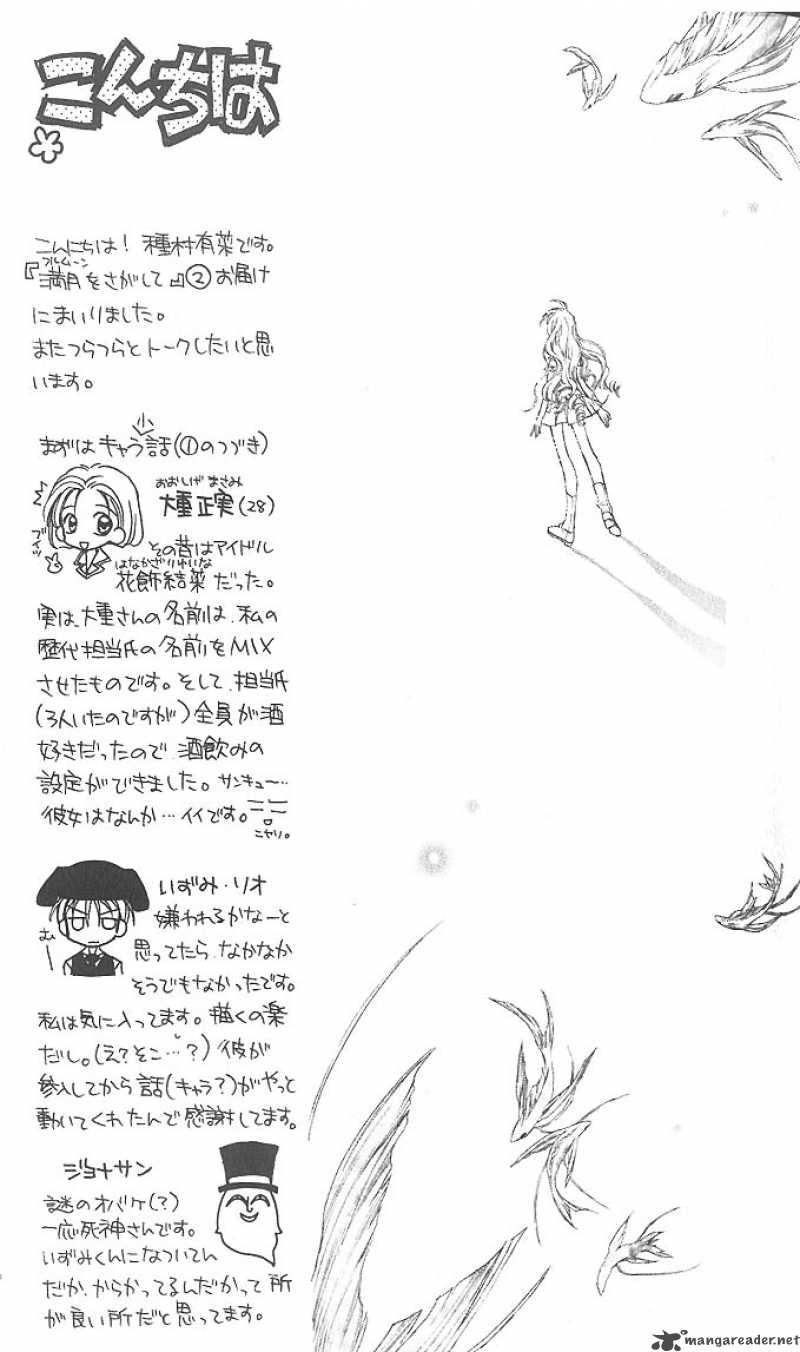 こんちは
こんにちは！種村有菜です。
フルムーン
『満月をさがして』②お届け
にまいりました。
またつらつらとトークしたいと思
います。
小
まずはキャラ話(①のつづき)
おおしげ まさみ
大重正実(28)
ブイッ
その昔はアイドル
はなかざりゆいな
花飾結菜だった。
実は、大重さんの名前は、私の
歴代担当氏の名前をMIX
させたものです。そして、担当氏
(3人いたのですが)全員が酒
好きだったので、酒飲みの
設定ができました。サンキュー…
彼女はなんか…イイです。
ニヤリ。
いずみ・リオ
嫌われるかなーと
むー
思ってたら、なかなか
そうでもなかったです。
私は気に入ってます。描くの楽
だし。(え?そこ…?)彼が
参入してから話(キャラ?)がやっと
動いてくれたんで感謝してます。
ジョナサン
謎のオバケ(?)
一応死神さんです。
いずみくんになついてん
だか、からかってるんだかって所
が良い所だと思ってます。
mangareader.net